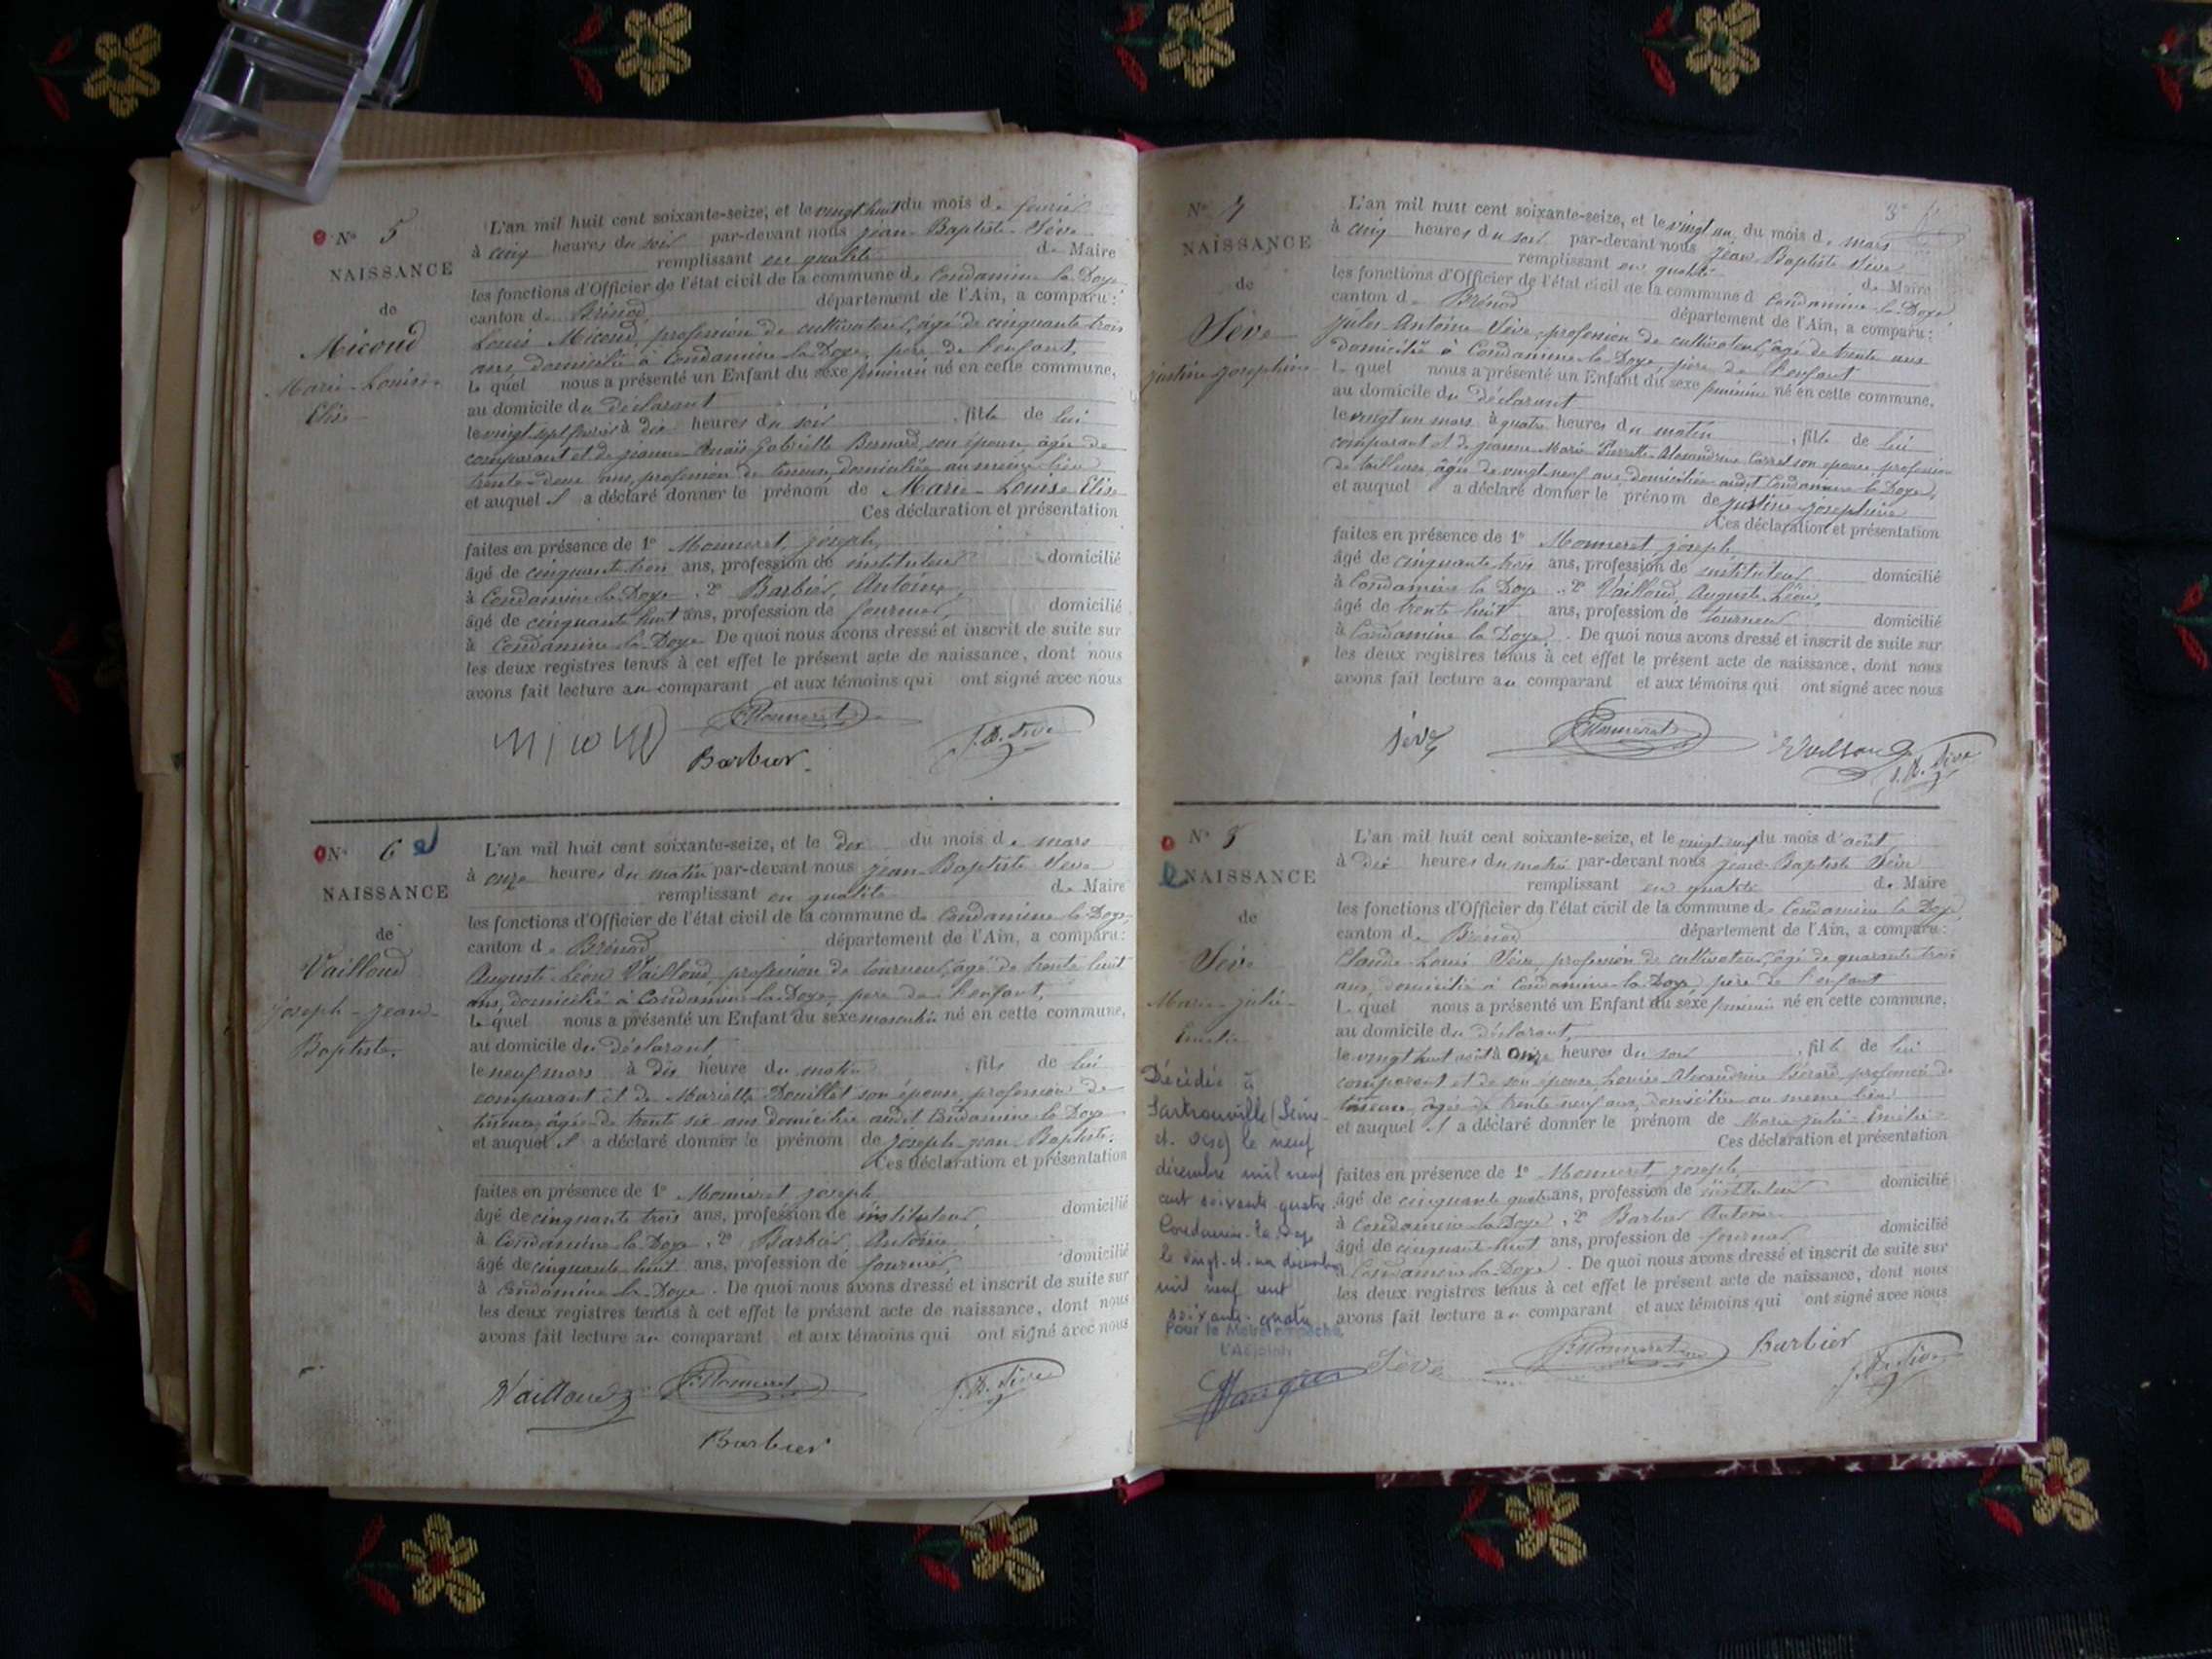 N° 5
NAISSANCE
de
Micoud
Marie-Louise-
Elise
L'an mil huit cent soixante-seize, et le vingt huit du mois de février
à cinq heures du soir par-devant nous Jean-Baptiste Sève
remplissant en qualité de Maire
les fonctions d'Officier de l'état civil de la commune de Condamine la Doye
canton de Brénod département de l'Ain, a comparu:
Louis Micoud, profession de cultivateur, âgé de cinquante trois
ans, domicilié à Condamine la Doye, père de l'enfant,
Le quel nous a présenté un Enfant du sexe féminin né en cette commune,
au domicile du déclarant
le vingt sept février à dix heures du soir , fille de lui
comparant et de Jeanne Anaïs Gabrielle Bernard, son épouse, âgée de
trente-deux ans, profession de tisseuse, domiciliée au même lieu
et auquel il a déclaré donner le prénom de Marie-Louise Elise
Ces déclaration et présentation
faites en présence de 1° Monneret, Joseph,
âgé de cinquante trois ans, profession de instituteur domicilié
à Condamine la Doye , 2° Barbier, Antoine,
âgé de cinquante huit ans, profession de fournier, domicilié
à Condamine la Doye De quoi nous avons dressé et inscrit de suite sur
les deux registres tenus à cet effet le présent acte de naissance, dont nous
avons fait lecture au comparant et aux témoins qui ont signé avec nous
Micoud Monneret J.B. Sève
Barbier
N° 6
NAISSANCE
de
Vailloud
Joseph-Jean-
Baptiste.
L'an mil huit cent soixante-seize, et le dix du mois de mars
à onze heures du matin par-devant nous Jean-Baptiste Sève
remplissant en qualité de Maire
les fonctions d'Officier de l'état civil de la commune de Condamine la Doye
canton de Brénod département de l'Ain, a comparu:
Auguste Léon Vailloud, profession de tourneur, âgé de trente huit
ans, domicilié à Condamine la Doye, père de l'enfant,
Le quel nous a présenté un Enfant du sexe masculin né en cette commune,
au domicile du déclarant
le neuf mars à dix heure du matin , fils de lui
comparant et de Mariette Douillet son épouse, profession de
tisseuse, âgée de trente six ans domiciliée audit Condamine la Doye
et auquel il a déclaré donner le prénom de Joseph-Jean-Baptiste.
Ces déclaration et présentation
faites en présence de 1° Monneret Joseph
âgé de cinquante trois ans, profession de instituteur, domicilié
à Condamine la Doye , 2° Barbier, Antoine
âgé de cinquante huit ans, profession de fournier, domicilié
à Condamine la Doye. De quoi nous avons dressé et inscrit de suite sur
les deux registres tenus à cet effet le présent acte de naissance, dont nous
avons fait lecture au comparant et aux témoins qui ont signé avec nous
Vailloud Monneret J.B. Sève
Barbier
3e
N° 7
NAISSANCE
de
Sève
Justine-Josephine
L'an mil huit cent soixante-seize, et le vingt un du mois de mars
à cinq heures du soir par-devant nous Jean Baptiste Sève
remplissant en qualité de Maire
les fonctions d'Officier de l'état civil de la commune d Condamine la Doye
canton de Brénod département de l'Ain, a comparu:
Jules Antoine Sève, profession de cultivateur, âgé de trente ans
domicilié à Condamine la Doye, père de l'enfant
Le quel nous a présenté un Enfant du sexe féminin né en cette commune,
au domicile du déclarant
le vingt un mars à quatre heures du matin , fille de lui
comparant et de Jeanne Marie Pierrette Alexandrine Carret son épouse, profession
de tailleuse, âgée de vingt-neuf ans, domiciliée audit Condamine la Doye,
et auquel a déclaré donner le prénom de Justine-Josephine
Ces déclaration et présentation
faites en présence de 1° Monneret, Joseph,
âgé de cinquante trois ans, profession de instituteur domicilié
à Condamine la Doye , 2° Vailloud, Auguste Léon,
âgé de trente huit ans, profession de tourneur domicilié
à Condamine la Doye. De quoi nous avons dressé et inscrit de suite sur
les deux registres tenus à cet effet le présent acte de naissance, dont nous
avons fait lecture au comparant et aux témoins qui ont signé avec nous
Sève Monneret Vailloud
J.B. Sève
N° 8
NAISSANCE
de
Sève
Marie-Julie-
Emélie
Décédée à
Sartrouville (Seine-
et-Oise) le neuf
décembre mil neuf
cent soixante quatre
Condamine-la-Doye
le vingt-et-un décembre
mil neuf cent
soixante-quatre
Pour le Maire empêché,
L'Adjoint
L'an mil huit cent soixante-seize, et le vingt neuf du mois d'août,
à dix heures du matin par-devant nous Jean-Baptiste Sève
remplissant en qualité de Maire
les fonctions d'Officier de l'état civil de la commune de Condamine la Doye,
canton de Brénod département de l'Ain, a comparu:
Claude-Louis Sève, profession de cultivateur, âgé de quarante trois
ans, domicilié à Condamine la Doye, père de l'enfant
Le quel nous a présenté un Enfant du sexe féminin né en cette commune,
au domicile du déclarant,
le vingt huit août à onze heures du soir , fille de lui
comparant et de son épouse Louise Alexandrine Bérard profession de
tisseuse, âgée de trente neuf ans, domiciliée au même lieu
et auquel il a déclaré donner le prénom de Marie Julie Emélie
Ces déclaration et présentation
faites en présence de 1° Monneret, Joseph,
âgé de cinquante quatre ans, profession de instituteur domicilié
à Condamine la Doye , 2° Barbier Antoine
âgé de cinquante huit ans, profession de fournier, domicilié
à Condamine la Doye. De quoi nous avons dressé et inscrit de suite sur
les deux registres tenus à cet effet le présent acte de naissance, dont nous
avons fait lecture au comparant et aux témoins qui ont signé avec nous
Sève Monneret Barbier
J.B. Sève